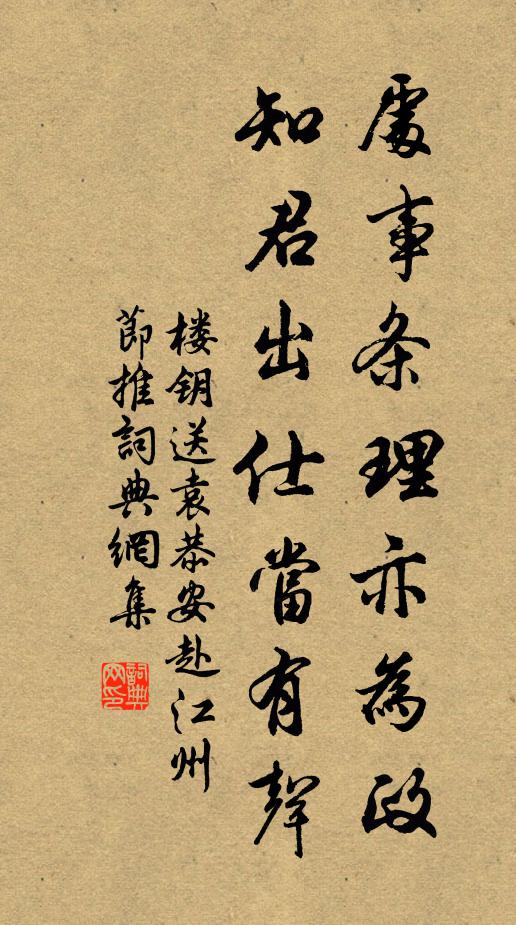 處事条理亦為政
知君出仕當有聲
楼钥送袁恭安赴江州
節推詞典網集
詞典网印